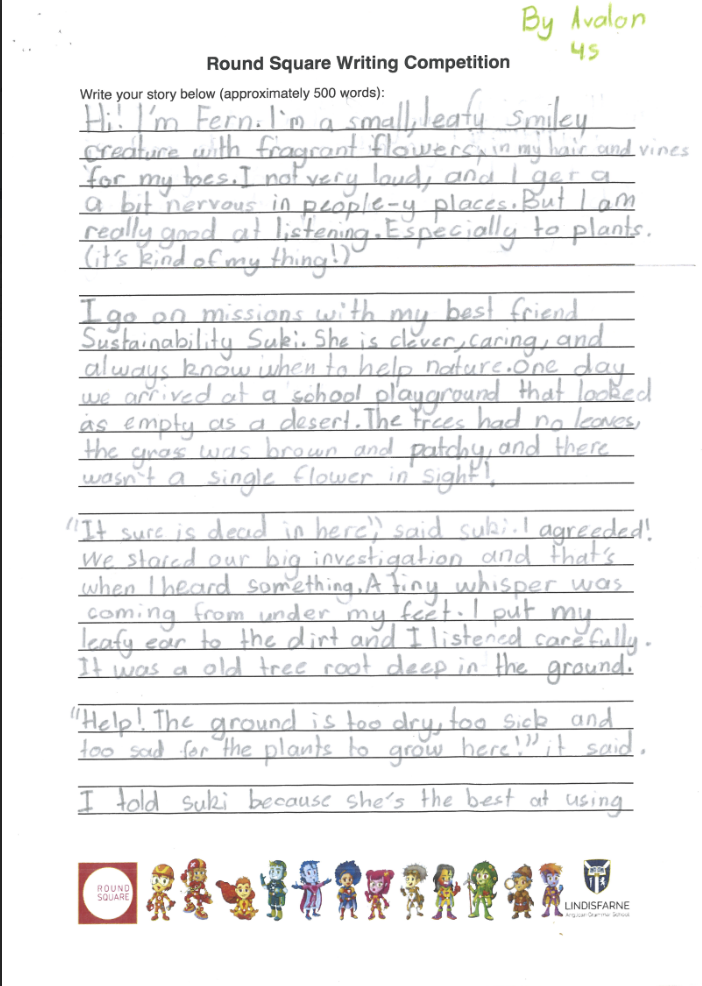 By Avalon
4S
Round Square Writing Competition
Write your story below (approximately 500 words):
Hi! I'm Fern. I'm a small, leafy smiley
creature with fragrant flowers, in my hair and vines
for my toes. I not very loud, and I ger a
a bit nervous in people-y places. But I am
really good at listening. Especially to plants.
(it's kind of my thing!)
I go on missions with my best friend
Sustainability Suki. She is clever, caring, and
always know when to help nature. One day
we arrived at a school playground that looked
as empty as a desert. The trees had no leaves,
the gras was brown and patchy, and there
wasn't a single flower in sight!
"It sure is dead in here", said suki. I agreeded!
We stared our big investigation and that's
when I heard something. A tiny whisper was
coming from under my feet. I put my
leafy ear to the dirt and I listened carefully.
It was a old tree root deep in the ground.
"Help! The ground is too dry, too sick and
too sad for the plants to grow here!" it said.
I told suki because she's the best at using
ROUND
SQUARE
LINDISFARNE
Anglican Grammar School